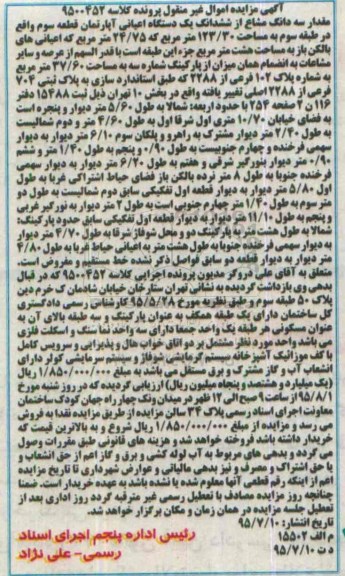 آگهی مزایده اموال غیر منقول پرونده کلاسه ۹۵۰۰۴۵۲
مقدار سه دانگ مشاع از ششدانگ یک دستگاه اعیانی آپارتمان قطعه سوم واقع
در طبقه سوم به مساحت ۱۲۳/۳۰ متر مربع که ۲۴/۷۵ متر مربع که اعیانی های
بالکن باز به مساحت هشت متر مربع جزء این طبقه است با قدر السهم از عرصه و سایر
مشاعات به انضمام همان میزان از پارکینگ شماره سه به مساحت ۳۷/۶۰ متر مربع
به شماره پلاک ۱۰۲ فرعی از ۲۲۸۸ که طبق استاندارد سازی به پلاک ثبتی ۷۰۴
فرعی از ۲۲۸۸ اصلی تغییر یافته واقع در بخش ۱۰ تهران ذیل ثبت ۱۵۴۸۸ دفتر
۱۱۶ ن ۲ صفحه ۲۵۴ با حدود اربعه: شمالا به طول ۵/۶۰ متر دیوار و پنجره است
به فضای خیابان ۱۰/۷۰ متری اول شرقا اول به طول ۴/۶۰ متر و دوم شمالیست
به طول ۲/۴۰ متر دیوار مشترک به راهرو و پلکان سوم ۶/۱۰ متر دیوار به دیوار
سهمی فرخنده و چهارم جنوبیست به طول ۰/۹۰ و پنجم به طول ۱/۴۰ متر و ششم
۰/۹۰ متر دیوار نورگیر شرقی و هفتم به طول ۶/۲۰ متر دیوار به دیوار سهمی
فرخنده جنوبا به طول ۸ متر نرده بالکن باز فضای حیاط اشتراکی غربا به طول
اول ۵/۸۰ متر دیوار به دیوار قطعه اول تفکیکی سابق دوم شمالیست به طول دو
متر سوم به طول ۱/۴۰ متر چهارم جنوبی است به طول ۲ متر دیوار به نورگیر غربی
و پنجم به طول ۱۱/۱۰ متر دیوار به دیوار قطعه اول تفکیکی سابق حدود پارکینگ
شمالا به طول هشت متر به پارکینگ دو و محل شوفاژ شرقا به طول ۴/۷۰ متر دیوار
به دیوار سهمی فرخنده جنوبا به طول هشت متر به اعیانی حیاط غربا به طول ۴/۸۰
متر دیوار به دیوار قطعه دو سابق فواصل ذکر نشده خط مستقیم و مفروض است.
متعلق به آقای علی زورگر مدیون پرونده اجرایی کلاسه ۹۵۰۰۴۵۲ که در قبال
بدهی وی بازداشت گردیده به نشانی تهران ستارخان خیابان شادمان ک خرم دین
پلاک ۵۰ طبقه سوم و طبق نظریه مورخ ۹۵/۵/۲۸ کارشناس رسمی دادگستری
کل ساختمان دارای یک طبقه همکف به عنوان پارکینگ و سه طبقه بالای آن به
عنوان مسکونی هر طبقه یک واحد جمعا دارای سه واحد نما سنگ و اسکلت فلزی
می باشد واحد مورد نظر مشتمل بر دو اتاق خواب هال و پذیرایی و سرویس کامل
با کف موزائیک آشپزخانه سیستم گرمایشی شوفاژ و سیستم سرمایشی کولر دارای
انشعاب آب و گاز مشترک و برق مستقل می باشد به مبلغ ۱/۸۵۰/۰۰۰/۰۰۰ ریال
(یک میلیارد و هشتصد و پنجاه میلیون ریال) ارزیابی گردیده که در روز شنبه مورخ
۹۵/۸/۱ از ساعت ۹ صبح الی ۱۲ ظهر در میدان ونک چهار راه جهان کودک ساختمان
معاونت اجرای اسناد رسمی پلاک ۳۴ سالن مزایده از طریق مزایده نقدا به فروش
می رسد و مزایده از مبلغ ۱/۸۵۰/۰۰۰/۰۰۰ ریال شروع و به بالاترین قیمت که
خریدار داشته باشد فروخته خواهد شد و هزینه های قانونی طبق مقررات وصول
می گردد و بدهی های مربوط به آب لوله کشی و برق و گاز اعم از حق انشعاب و
یا حق اشتراک و مصرف و نیز بدهی مالیاتی و عوارض شهرداری تا تاریخ مزایده
اعم از اینکه رقم قطعی آنها معلوم شده یا نشده باشد به عهده خریدار است. ضمنا
چنانچه روز مزایده مصادف با تعطیل رسمی غیر مترقبه گردد روز اداری بعد از
تعطیل جلسه مزایده در همان زمان و مکان برگزار خواهد شد.
تاریخ انتشار: ۹۵/۷/۱۰
م الف ۱۵۵۰۲
د ت ۹۵/۷/۱۰
رئیس اداره پنجم اجرای اسناد
رسمی- علی نژاد